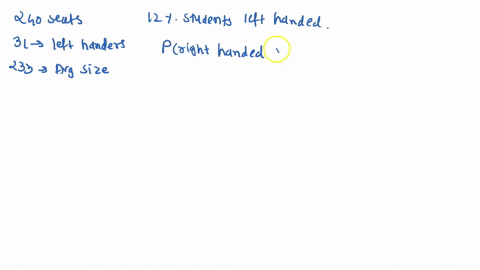 240 seats
31→ left handers
233→ Avg size
12%. students left handed.
P(right handed